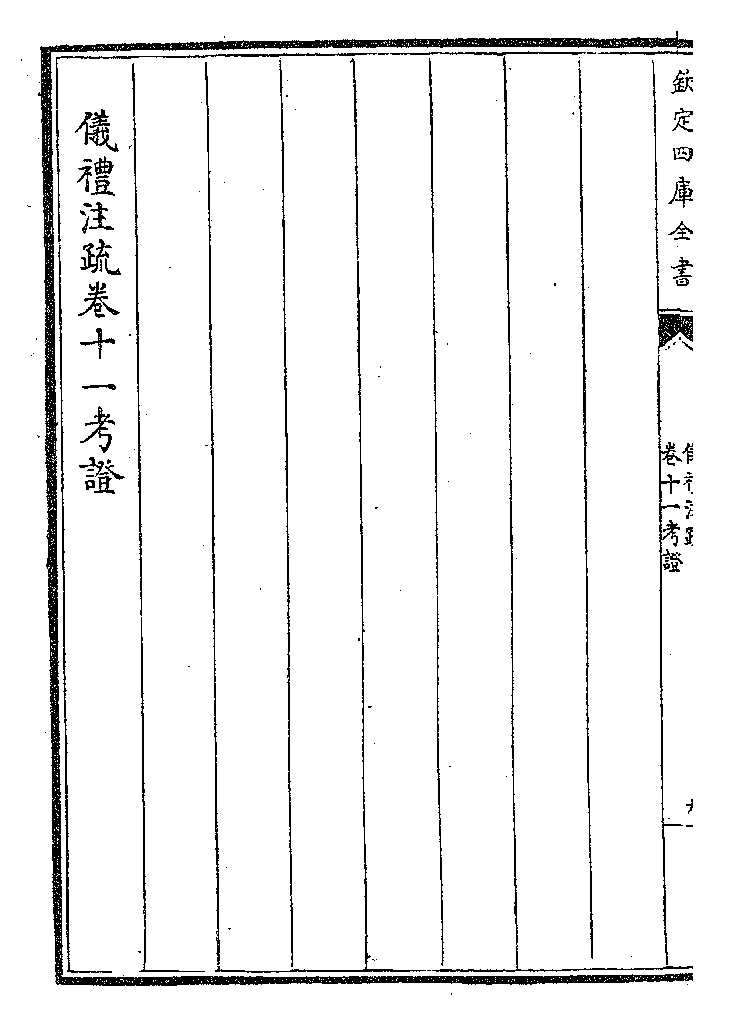 欽定四庫全書
儀禮注疏
卷十一考證
儀禮注疏卷十一考證